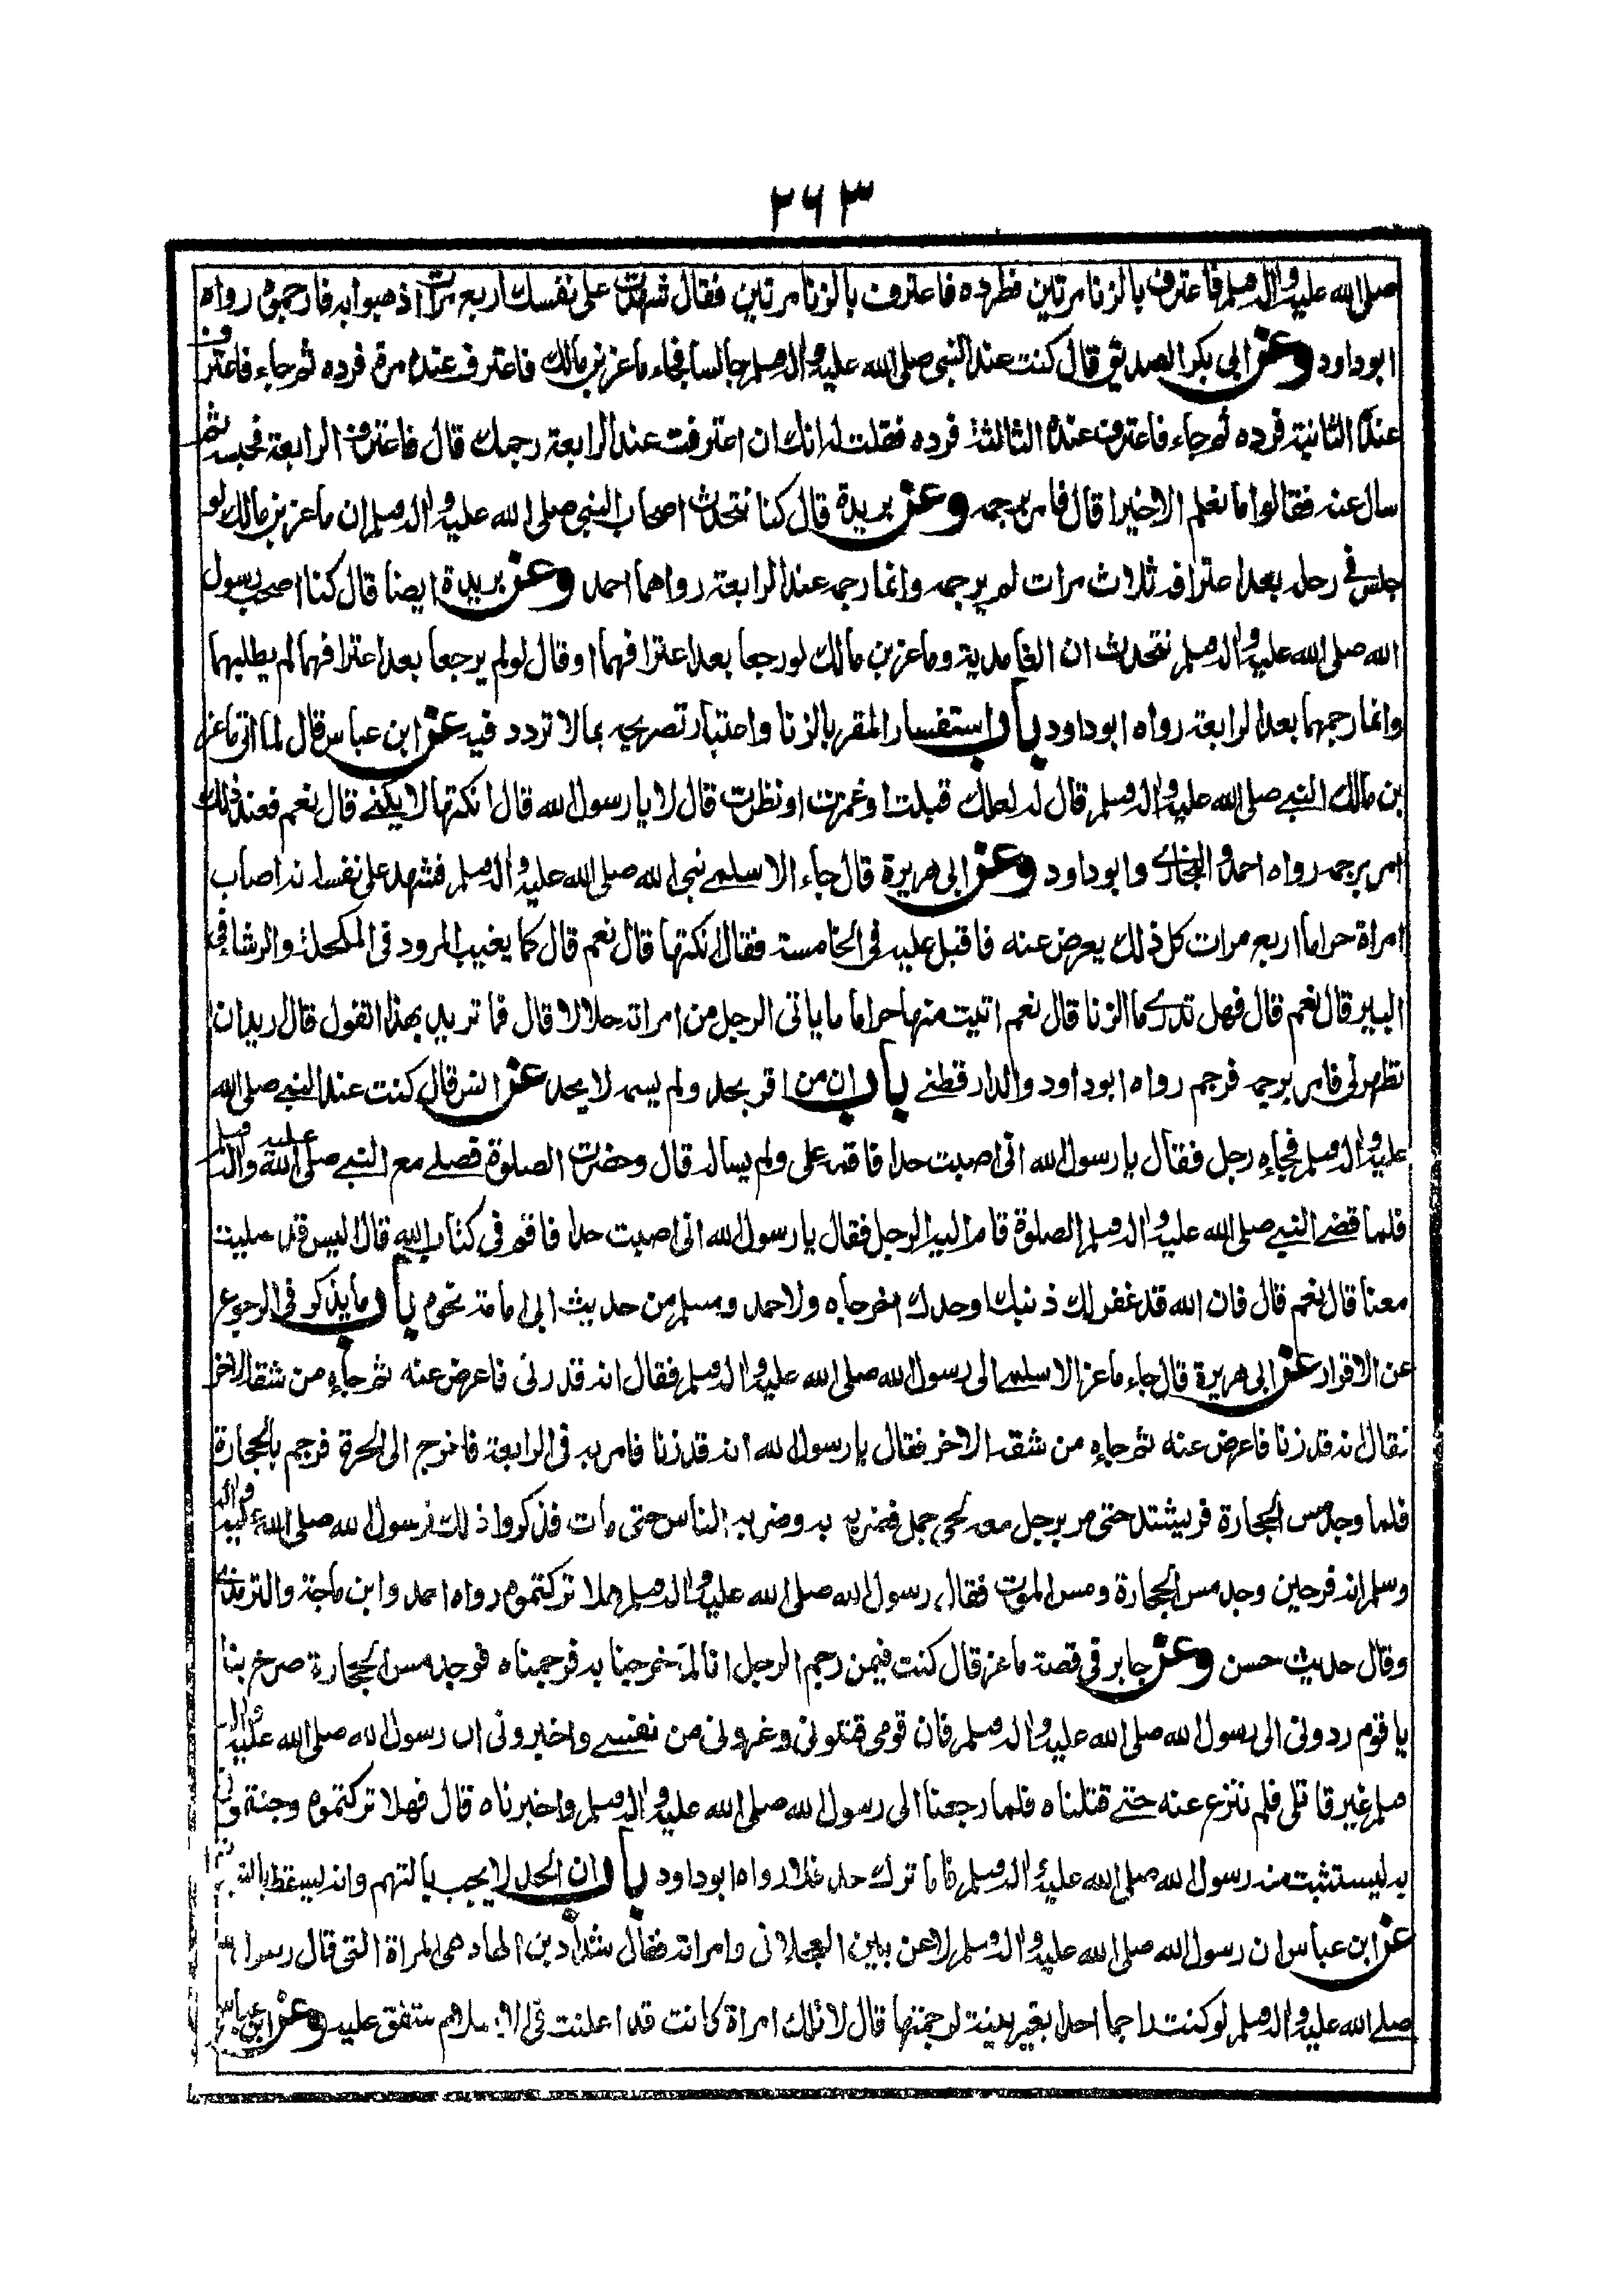 ٢٦٣
صلى الله عليه واله وسلم فاعترف بالزنا مرتين فطرده فاعترف بالزنا مرتين فقال شهدت على نفسك اربع مرات اذهبوا به فارجموه رواه
ابوداود وعن ابى بكر الصديق قال كنت عند النبى صلى الله عليه واله وسلم جالسا فجاء ماعز بن مالك فاعترف عنده مرة فرده ثم جاء فاعترف
عنده الثانية فرده ثم جاء فاعترف عنده الثالثة فرده فقلت له انك ان اعترفت عنده الرابعة رجمك قال فاعترف الرابعة فحبسه ثم
سال عنه فقالوا ما نعلم الا خيرا قال فامر برجمه وعن بريدة قال كنا نتحدث اصحاب النبى صلى الله عليه واله وسلم ان ماعز بن مالك لو
جلس فى رحله بعد اعترافه ثلاث مرات لم يرجمه وانما رجمه عند الرابعة رواهما احمد وعن بريدة ايضا قال كنا اصحب رسول
الله صلى الله عليه واله وسلم نتحدث ان الغامدية وماعز بن مالك لو رجعا بعد اعترافهما اوقال لولم يرجعا بعد اعترافهما لم يطلبهما
وانما رجمهما بعد الرابعة رواه ابوداود باب استفسار المقر بالزنا واعتبار تصريحه بما لا تردد فيه عن ابن عباس قال لما اتى ماعز
بن مالك النبى صلى الله عليه واله وسلم قال له لعلك قبلت او غمزت او نظرت قال لا يا رسول الله قال انكتها لا يكنى قال نعم فعند ذلك
امر برجمه رواه احمد والبخارى وابوداود وعن ابى هريرة قال جاء الاسلمى نبى الله صلى الله عليه واله وسلم فشهد على نفسه انه اصاب
امراة حراما اربع مرات كل ذلك يعرض عنه فاقبل عليه فى الخامسة فقال انكتها قال نعم قال كما يغيب المرود فى المكحلة والرشا فى
البير قال نعم قال فهل تدرى ما الزنا قال نعم اتيت منها حراما ما ياتى الرجل من امراته حلالا قال فما تريد بهذا القول قال اريد ان
تطهرنى فامر برجمه فرجم رواه ابوداود والدارقطنى باب ان من اقر بحد ولم يسمه لا يحد عن انس قال كنت عند النبى صلى الله
عليه واله وسلم فجاءه رجل فقال يا رسول الله انى اصبت حدا فاقمه على ولم يساله قال وحضرت الصلوة فصلى مع النبى صلى الله عليه واله وسلم
فلما قضى النبى صلى الله عليه واله وسلم الصلوة قام اليه الرجل فقال يا رسول الله انى اصبت حدا فاقم فى كتاب الله قال اليس قد صليت
معنا قال نعم قال فان الله قد غفر لك ذنبك او حدك اخرجاه ولاحمد ومسلم من حديث ابى امامة نحوه باب ما يذكر فى الرجوع
عن الاقرار عن ابى هريرة قال جاء ماعز الاسلمى الى رسول الله صلى الله عليه واله وسلم فقال انه قد زنى فاعرض عنه ثم جاءه من شقه الاخر
فقال انه قد زنا فاعرض عنه ثم جاءه من شقه الاخر فقال يا رسول الله انه قد زنا فامر به فى الرابعة فاخرج الى الحرة فرجم بالحجارة
فلما وجد مس الحجارة فر يشتد حتى مر برجل معه لحى جمل فضربه به وضربه الناس حتى مات فذكروا ذلك لرسول الله صلى الله عليه واله
وسلم انه فر حين وجد مس الحجارة ومس الموت فقال رسول الله صلى الله عليه واله وسلم هلا تركتموه رواه احمد وابن ماجة والترمذى
وقال حديث حسن وعن جابر فى قصة ماعز قال كنت فيمن رجم الرجل انا لما خرجنا به فرجمناه فوجد مس الحجارة صرخ بنا
يا قوم ردونى الى رسول الله صلى الله عليه واله وسلم فان قومى قتلونى وغرونى من نفسى واخبرونى ان رسول الله صلى الله عليه واله
وسلم غير قاتلى فلم ننزع عنه حتى قتلناه فلما رجعنا الى رسول الله صلى الله عليه واله وسلم واخبرناه قال فهلا تركتموه وجئتمونى
به ليستثبت منه رسول الله صلى الله عليه واله وسلم فاما ترك حد فلا رواه ابوداود باب ان الحد لا يجب بالتهم وانه يسقط
عن ابن عباس ان رسول الله صلى الله عليه واله وسلم لاعن بين العجلانى وامراته فقال شداد بن الهاد هى المراة التى قال رسول الله
صلى الله عليه واله وسلم لو كنت راجما احدا بغير بينة لرجمتها قال لا تلك امراة كانت قد اعلنت فى الاسلام متفق عليه وعن ابن عباس